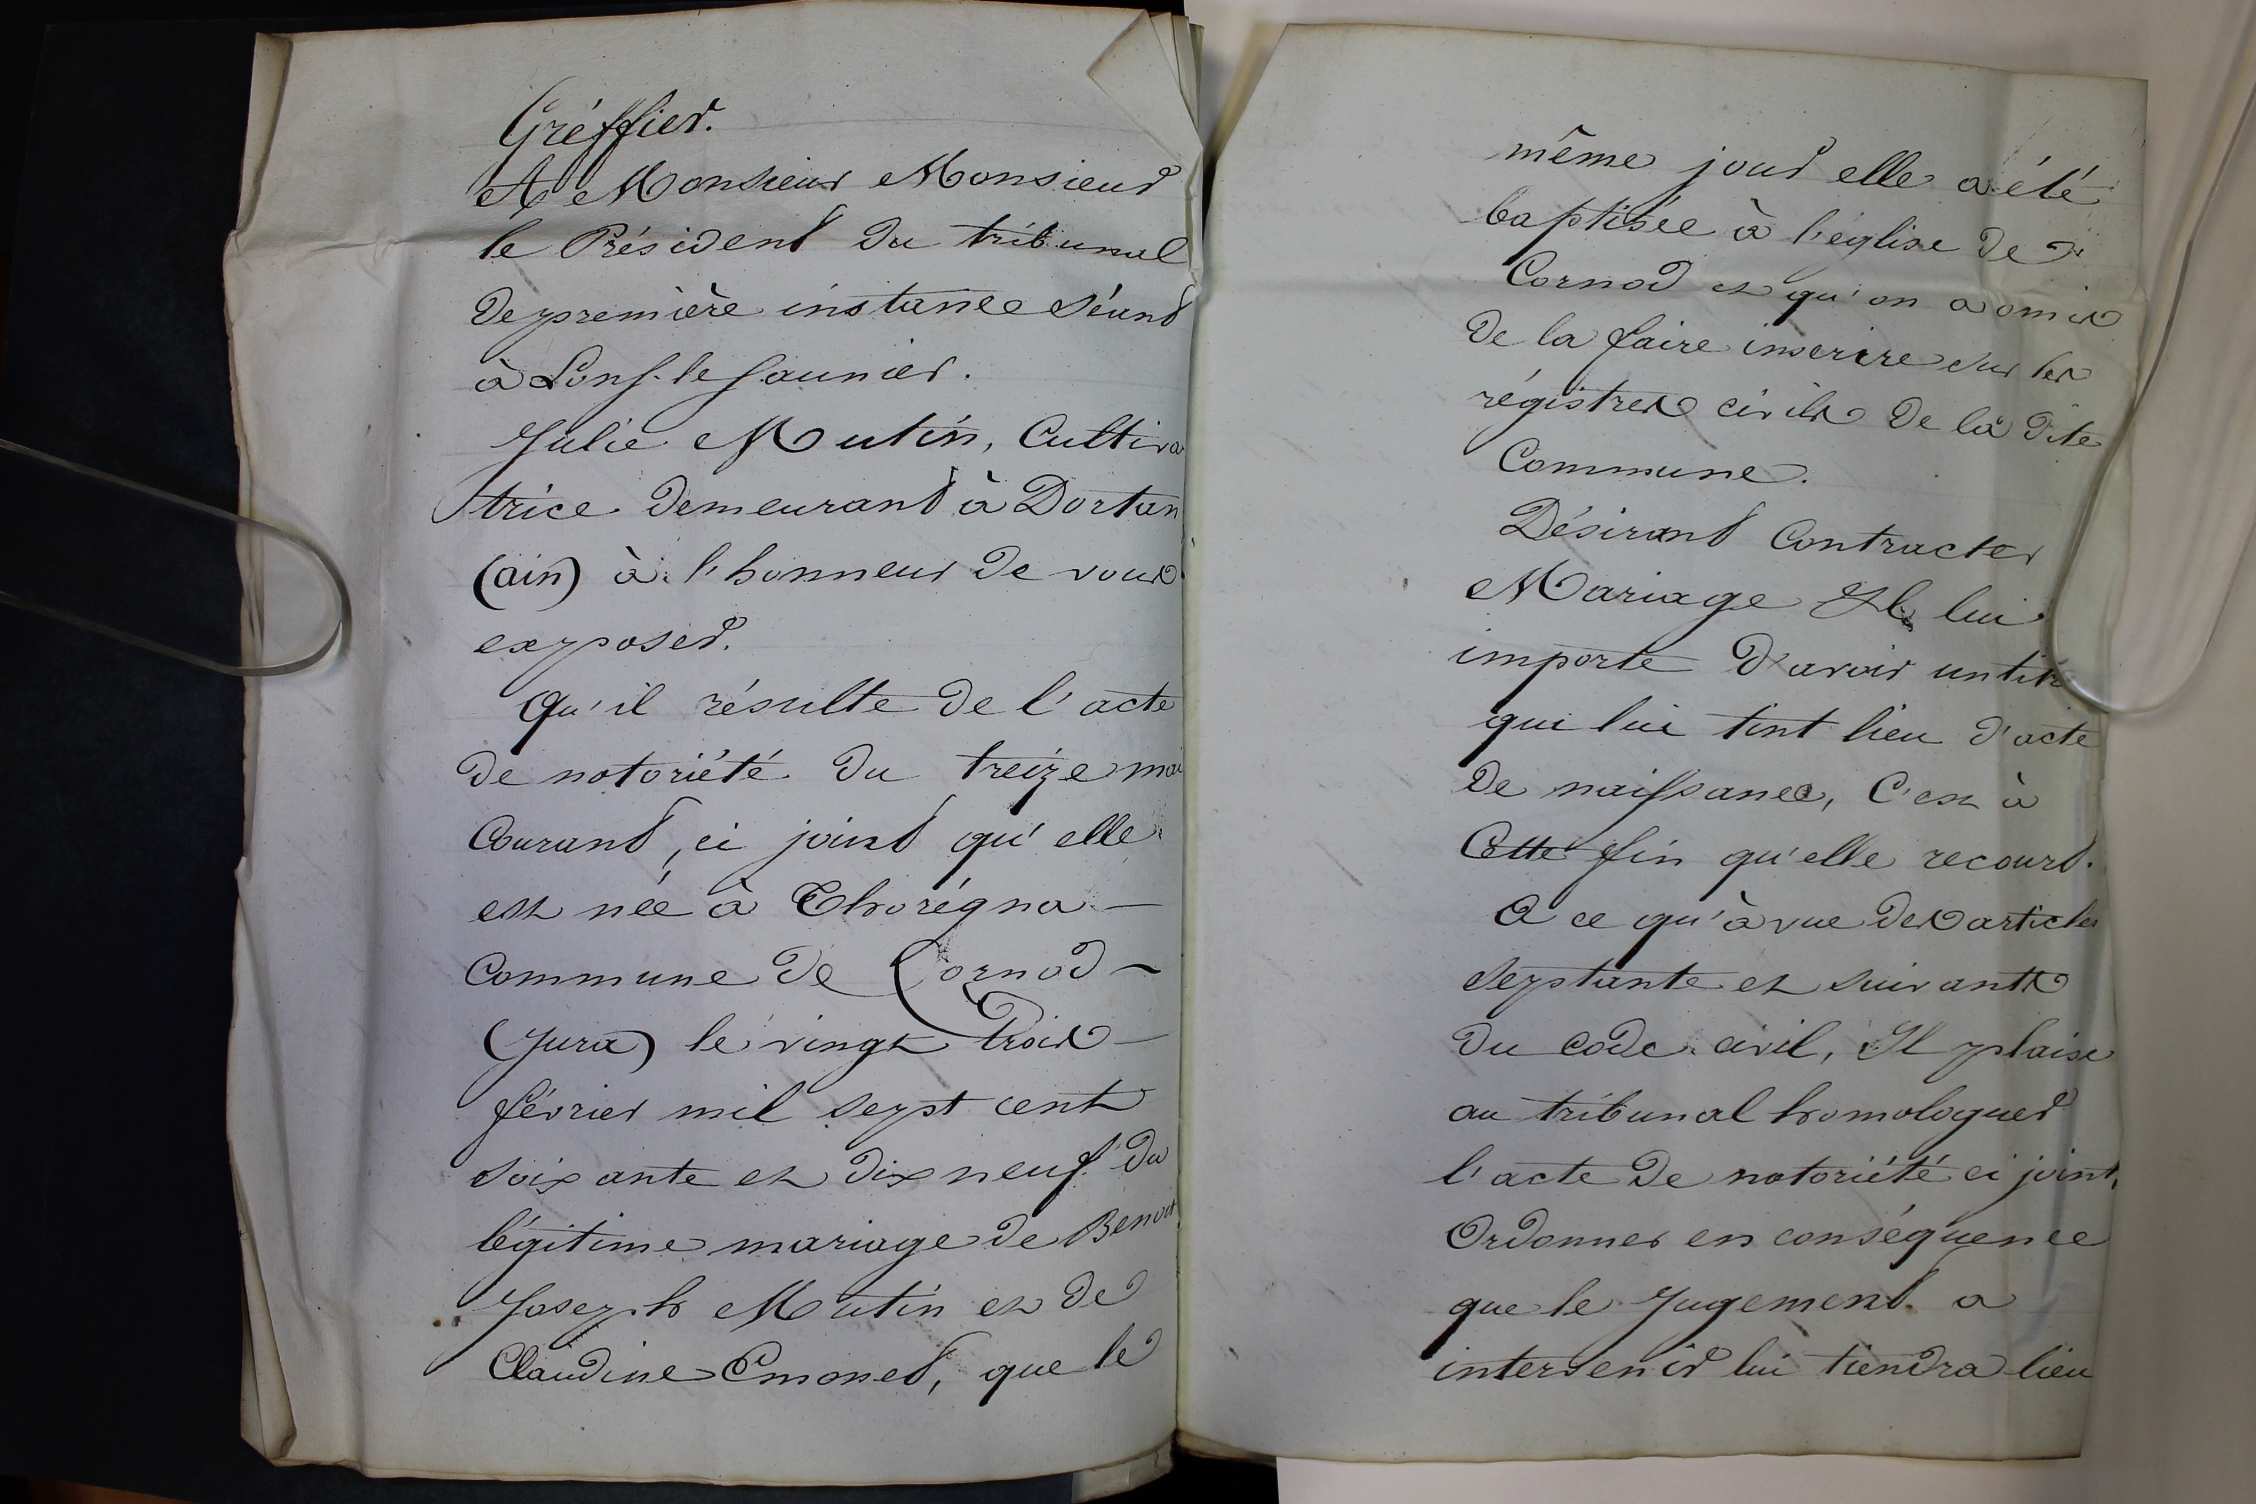 Gréffier.
A Monsieur Monsieur
le Président du tribunal
de première instance séant
à Lons-le-saunier.
Julie Mutin, Cultiva
trice demeurant à Dortan
(ain) à l'honneur de vous
exposer.
qu'il résulte de l'acte
de notoriété du treize mai
Courant, ci joint qu'elle
est née à Thorégna -
Commune de Cornod -
(Jura) le vingt trois -
février mil sept cent
soixante et dix neuf du
légitime mariage de Benoit
Joseph Mutin et de
Claudine Emonet, que le
même jour elle a été
baptisée à l'église de
Cornod et qu'on a omis
de la faire inscrire sur les
régistres civils de la dite
Commune.
Désirant Contracter
Mariage Il lui
importe d'avoir un titre
qui lui tint lieu d'acte
de naissance, C'est à
Cette fin qu'elle recourt.
A ce qu'à vue des articles
septante et suivants
du code civil, Il plaise
au tribunal homologuer
l'acte de notoriété ci joint,
Ordonner en conséquence
que le Jugement a
intervenir lui tiendra lieu